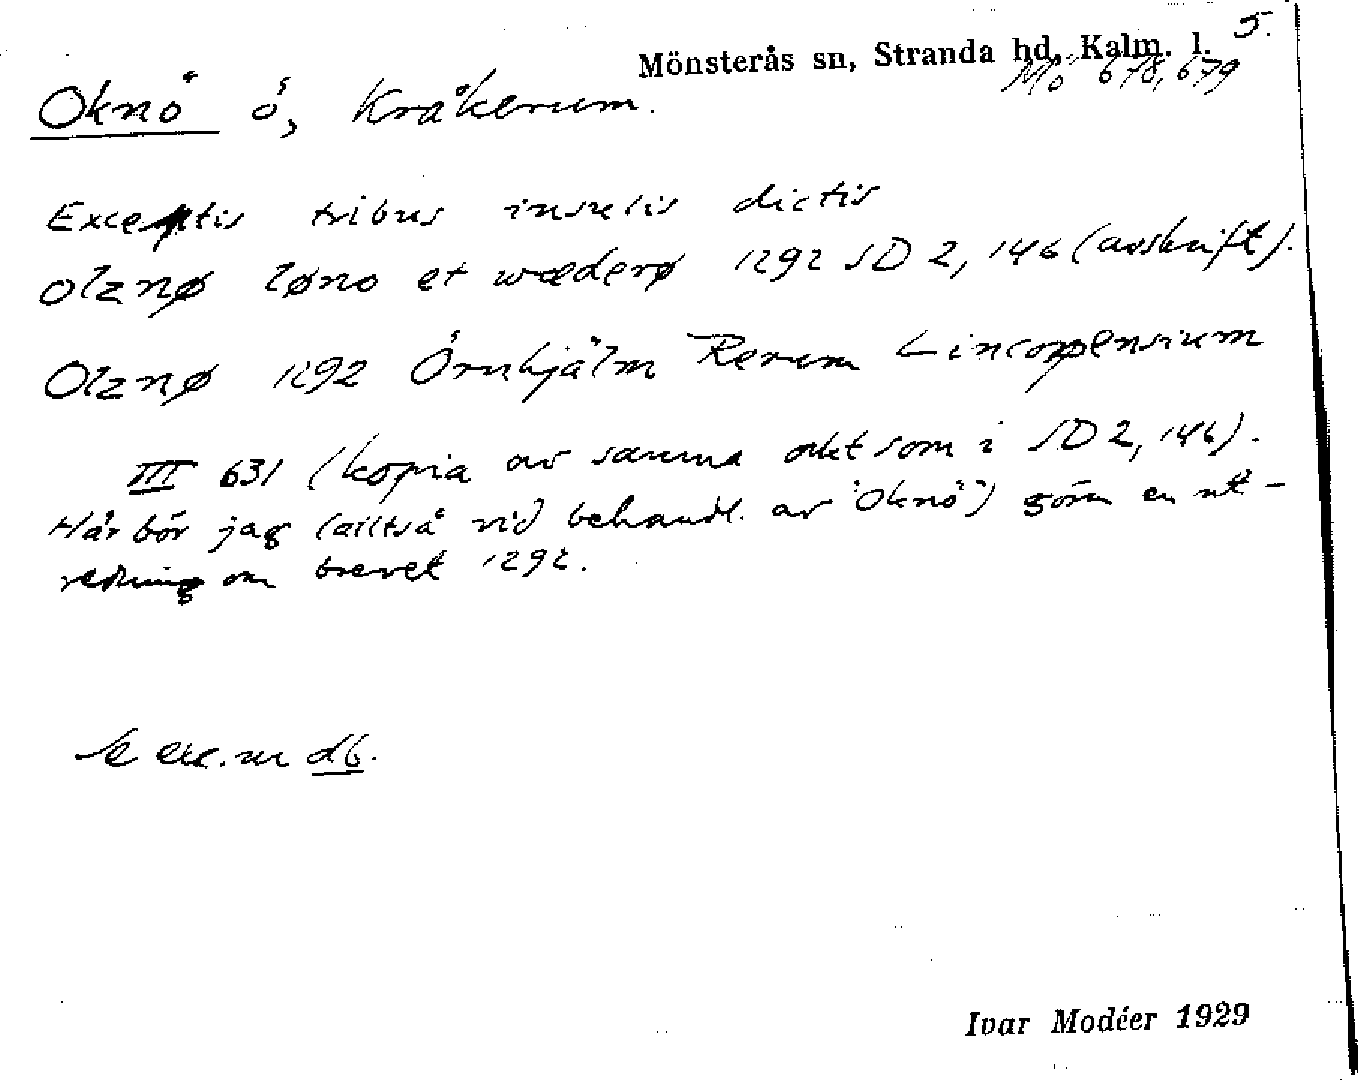 5.
Mönsterås sn, Stranda hd, Kalm. l.
Mö 678, 679
Oknö ö, Kråkerum.
Exceptis tribus insulis dictis
Olznø løno et wæderø 1292 SD 2, 146 (avskrift).
Olznø 1292 Örnhjälm Rerum Lincopensium
III 631 (kopia av samma akt som i SD 2, 146).
Här bör jag (alltså vid behandl. av "Oknö") göra en ut-
redning om brevet 1292.
Se exc. nr d6.
Ivar Modéer 1929